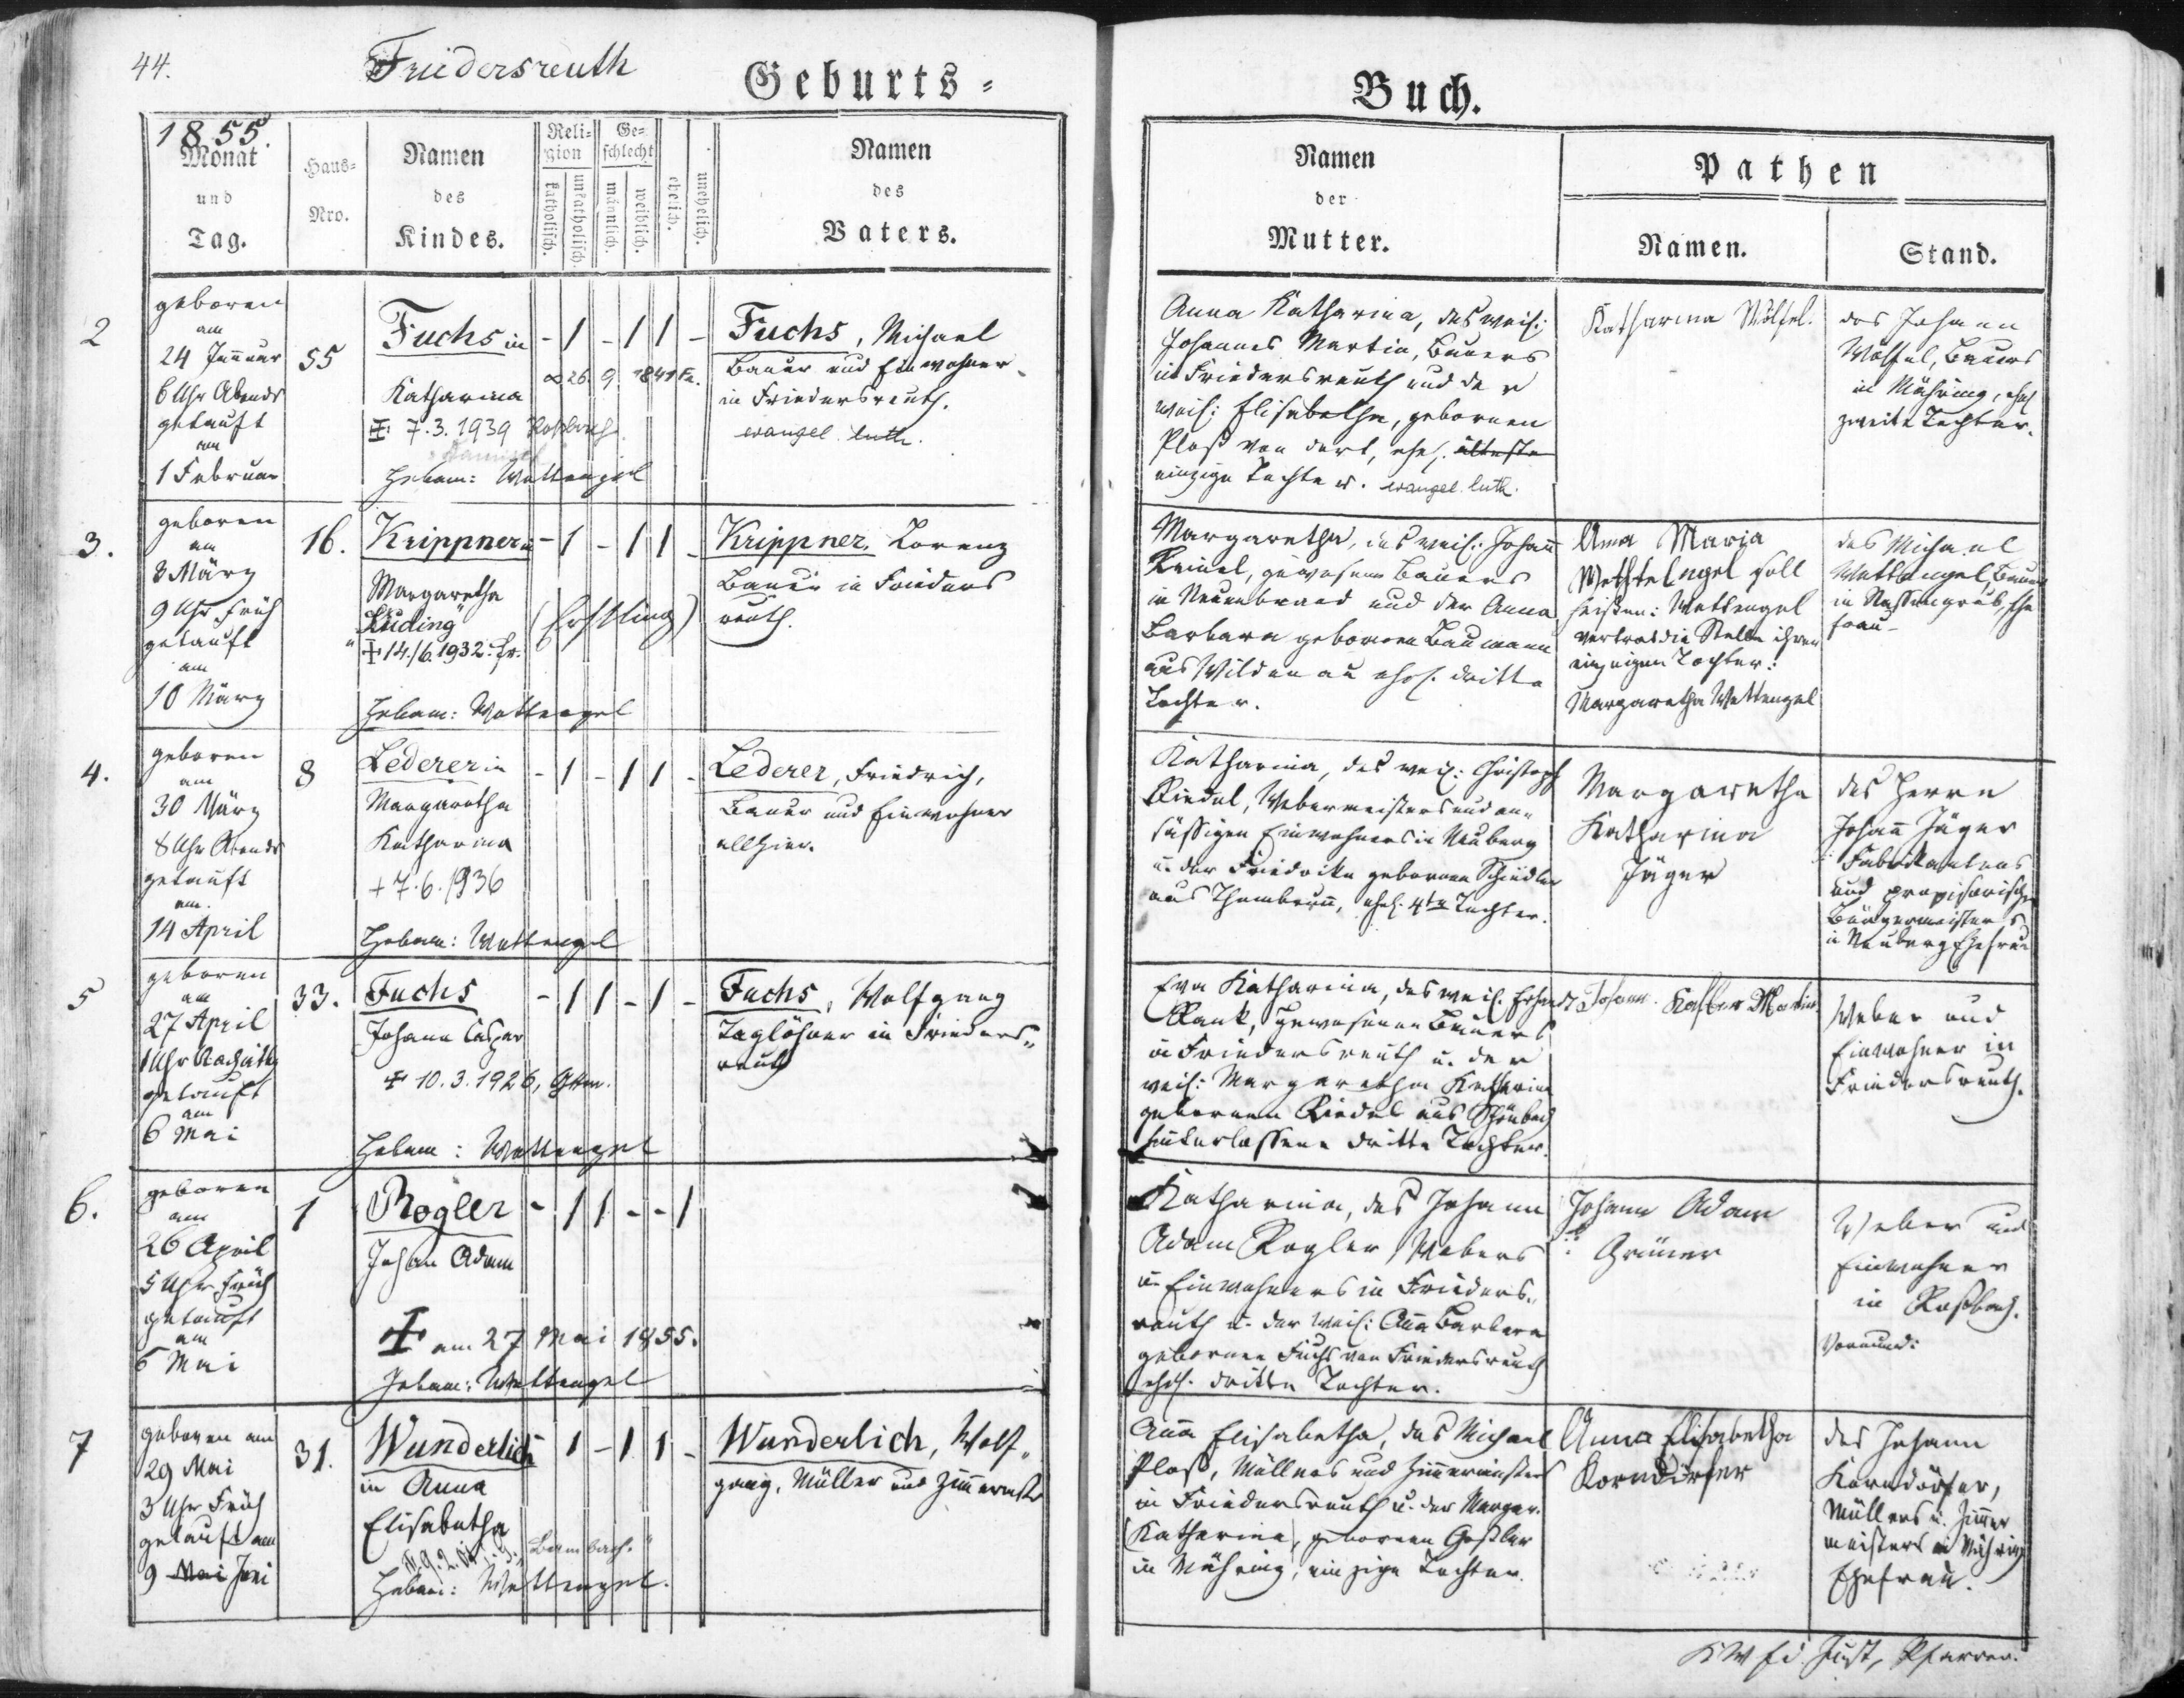 44.
Friedersreuth
Geburts=
Buch.
1855.
Monat
und
Tag.
Haus=
Nro.
Namen
des
Kindes.
Reli=
gion
katholisch.
unkatholisch.
Ge=
schlecht
männlich.
weiblich.
ehelich.
unehelich.
Namen
des
Vaters.
Namen
der
Mutter.
Pathen
Namen.
Stand.
2
geboren
am
24 Januar
6 Uhr Abends
getauft
am
1 Februar
55
Fuchs in
Katharina
7.3.1939 Roßbach
Hebam: Wettengel
- 1 - 1 1 -
∞ 26. 9. 1841
Fuchs, Michael
Bauer und Einwohner
in Friedersreuth.
evangel. luth.
Anna Katharina, des weil:
Johannes Martin, Bauers
in Friedersreuth und der
weil: Elisabetha, gebornen
Ploß von dort, ehel. älteste
einzige Tochter. evangel. luth.
Katharina Wölfel.
des Johann
Wölfel, Bauers
in Mähring, ehel
zweite Tochter.
3.
geboren
am
8 März
9 Uhr Früh
getauft
am
10 März
16.
Krippner in
Margaretha
"Küding"
14./6. 1932.
(Erstling)
Hebam: Wettengel
- 1 - 1 1 -
Krippner, Lorenz
Bauer in Frieders
reuth.
Margaretha, des weil: Johann
Künzel, gewesenen Bauers
in Neuenbrand und der Anna
Barbara gebornen Baumann
aus Wildenau ehel. dritte
Tochter.
Anna Maria
Wettengel soll
heißen: Wettengel
vertrat die Stelle ihrer
einzigen Tochter:
Margaretha Wettengel
des Michael
Wettengel, Bauers
in Nassengrub, Ehe
frau-
4.
geboren
am
30 März
8 Uhr Abends
getauft
am.
14 April
8
Lederer in
Margaretha
Katharina
+ 7.6.1936
Hebam: Wettengel
- 1 - 1 1 -
Lederer, Friedrich,
Bauer und Einwohner
allhier.
Katharina, des weil: Christoph
Riedel, Webermeisters und an=
sässigen Einwohners in Neuberg
u. der Friedrike gebornen Schindler
aus Thonbrunn, ehel. 4te Tochter.
Margaretha
Katharina
Jäger
des Herrn
Johann Jäger
Fabrikantens
und provisorischen
Bürgermeisters
in Neuberg Ehefrau
5
geboren
am
27 April
1 Uhr Nachmittg
getauft
am
6 Mai
33.
Fuchs
Johann Casper
10.3.1926,
Hebam: Wettengel
- 1 1 - 1 -
Fuchs, Wolfgang
Taglöhner in Frieders=
reuth
Eva Katharina, des weil. Erhardt
Rank, gewesenen Bauers
in Friedersreuth u. der
weil: Margaretha Katharina
gebornen Riedel aus Schönbach
hinterlassene dritte Tochter.
Johann Kasper Martin
Weber und
Einwohner in
Friedersreuth.
6.
geboren
am
26 April
5 Uhr Früh
getauft
am
6 Mai
1
Rogler
Johan Adam
am 27 Mai 1855.
Hebam: Wettengel
- 1 1 - - 1
Katharina, des Johann
Adam Rogler Webers
u. Einwohners in Frieders=
reuth u. der weil: Anna Barbara
gebornen Fuchs von Friedersreuth
ehel. dritte Tochter.
Johann Adam
Grüner
Weber und
Einwohner
in Roßbach.
Vormund:
7
geboren am
29 Mai
3 Uhr Früh
getauft am
9 Mai Juni
31.
Wunderlich
in Anna
Elisabetha
Hebam: Wettengel.
1 - 1 1 -
Wunderlich, Wolf=
gang, Müller und Zimmermstr
Anna Elisabetha, des Michael
Ploß, Müllers und Zimmermeisters
in Friedersreuth u. der Margar.
Katharina, gebornen Goßler
in Mähring, einzige Tochter.
Anna Elisabetha
Korndörfer
des Johann
Korndörfer,
Müllers u. Zimmer
meisters in Mähring
Ehefrau.
Just, Pfarrer.